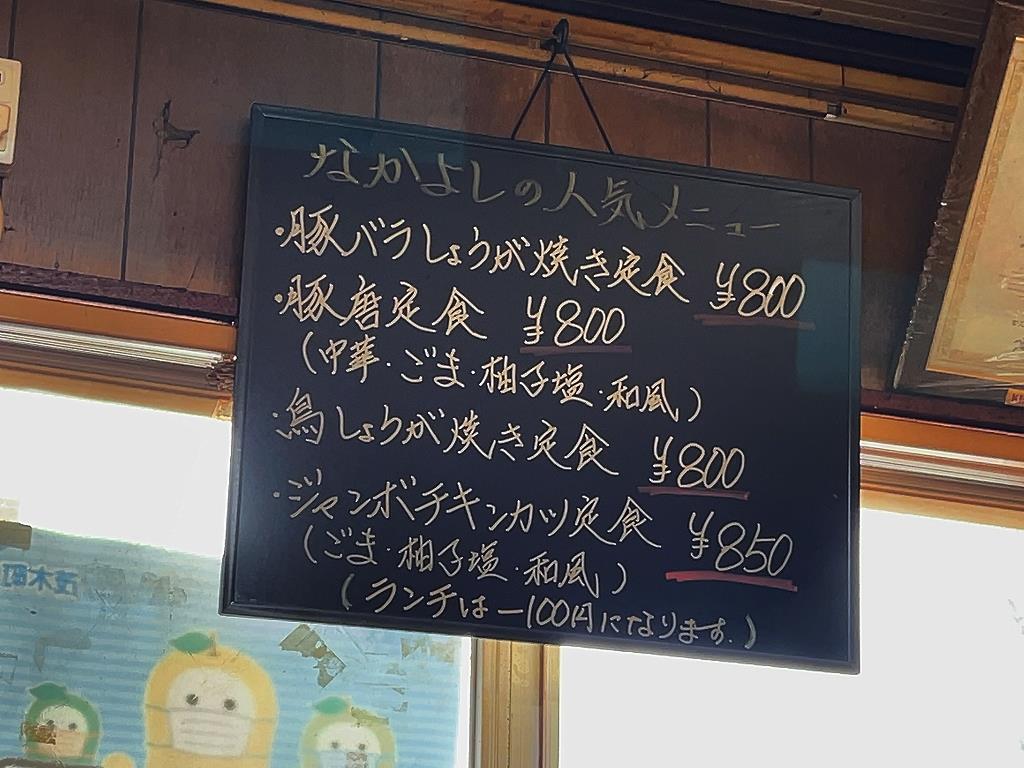 なかよしの人気メニュー
・豚バラしょうが焼き定食 ¥800
・豚磨定食 ¥800
(中華・ごま・柚子塩・和風)
・鳥しょうが焼き定食 ¥800
・ジャンボチキンカツ定食 ¥850
(ごま・柚子塩・和風)
(ランチは-100円になります。)